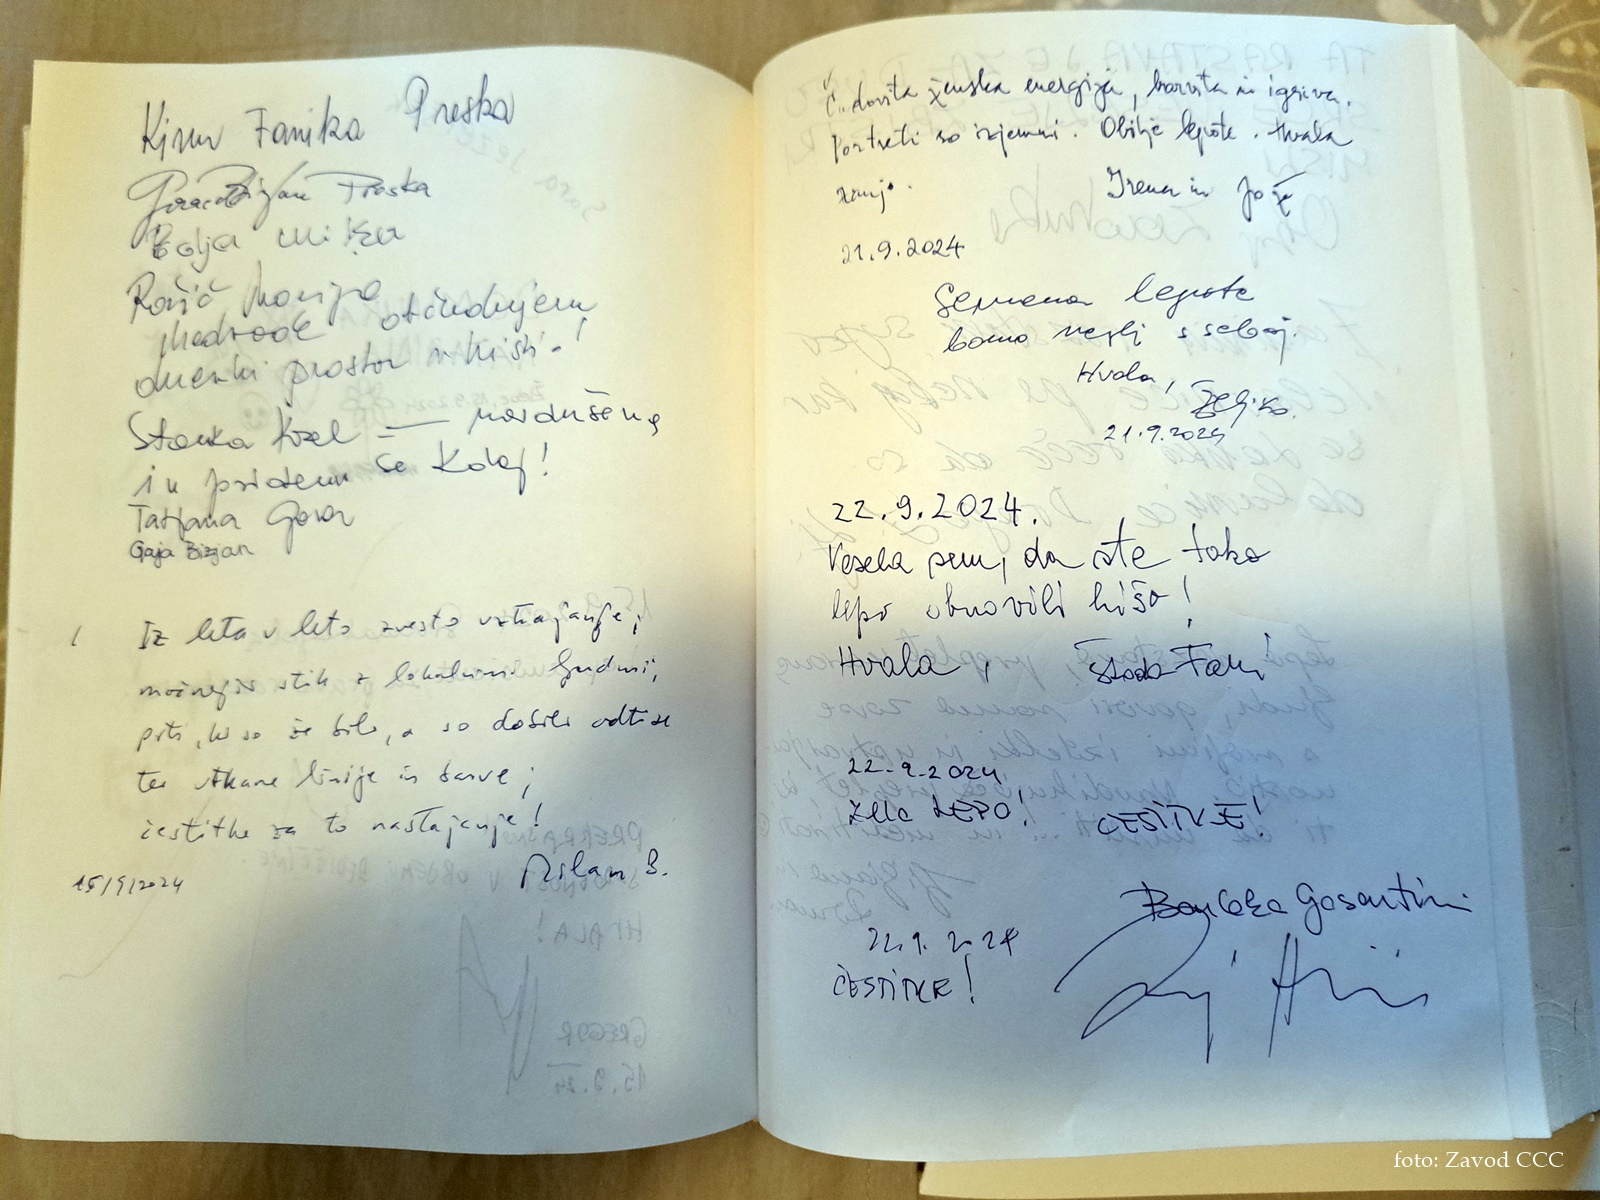 Fanika Preska
Preska
Bolja Mi
Rožič Marija
otčudujem
prostor v hiši!
Stanka navdušena
in pridem še kdaj!
Tatjana Govor
Gaja Bizjan
Iz leta v leto zvesto vztrajanje;
močnejši stik z lokalnimi ljudmi;
prti, ki so že bili, a so dobili odtise
ter vtkane linije in barve;
čestitke za to nastajanje!
15/9/2024
B.
Čudovita ženska energija, barvita in igriva.
Portreti so izjemni. Obilje lepote. Hvala
zanjo.
Irena in Jože
21.9.2024
Semena lepote
bomo nesli s seboj.
Hvala,
Željko.
21.9.2024
22.9.2024.
Vesela sem, da ste tako
lepo obnovili hišo!
Hvala,
22.9.2024
ZELO LEPO! ČESTITKE!
22.9.2024
ČESTITKE!
foto: Zavod CCC